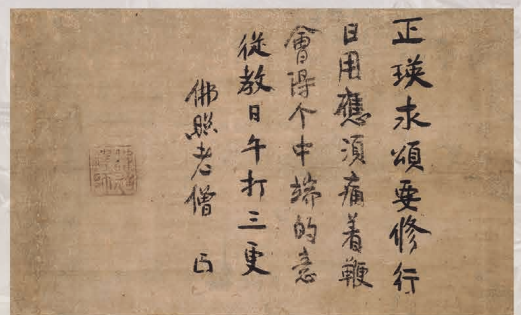 正瑛求頌要修行
日用應須痛着鞭
會得个中端的意
從教日午打三更
佛照老僧